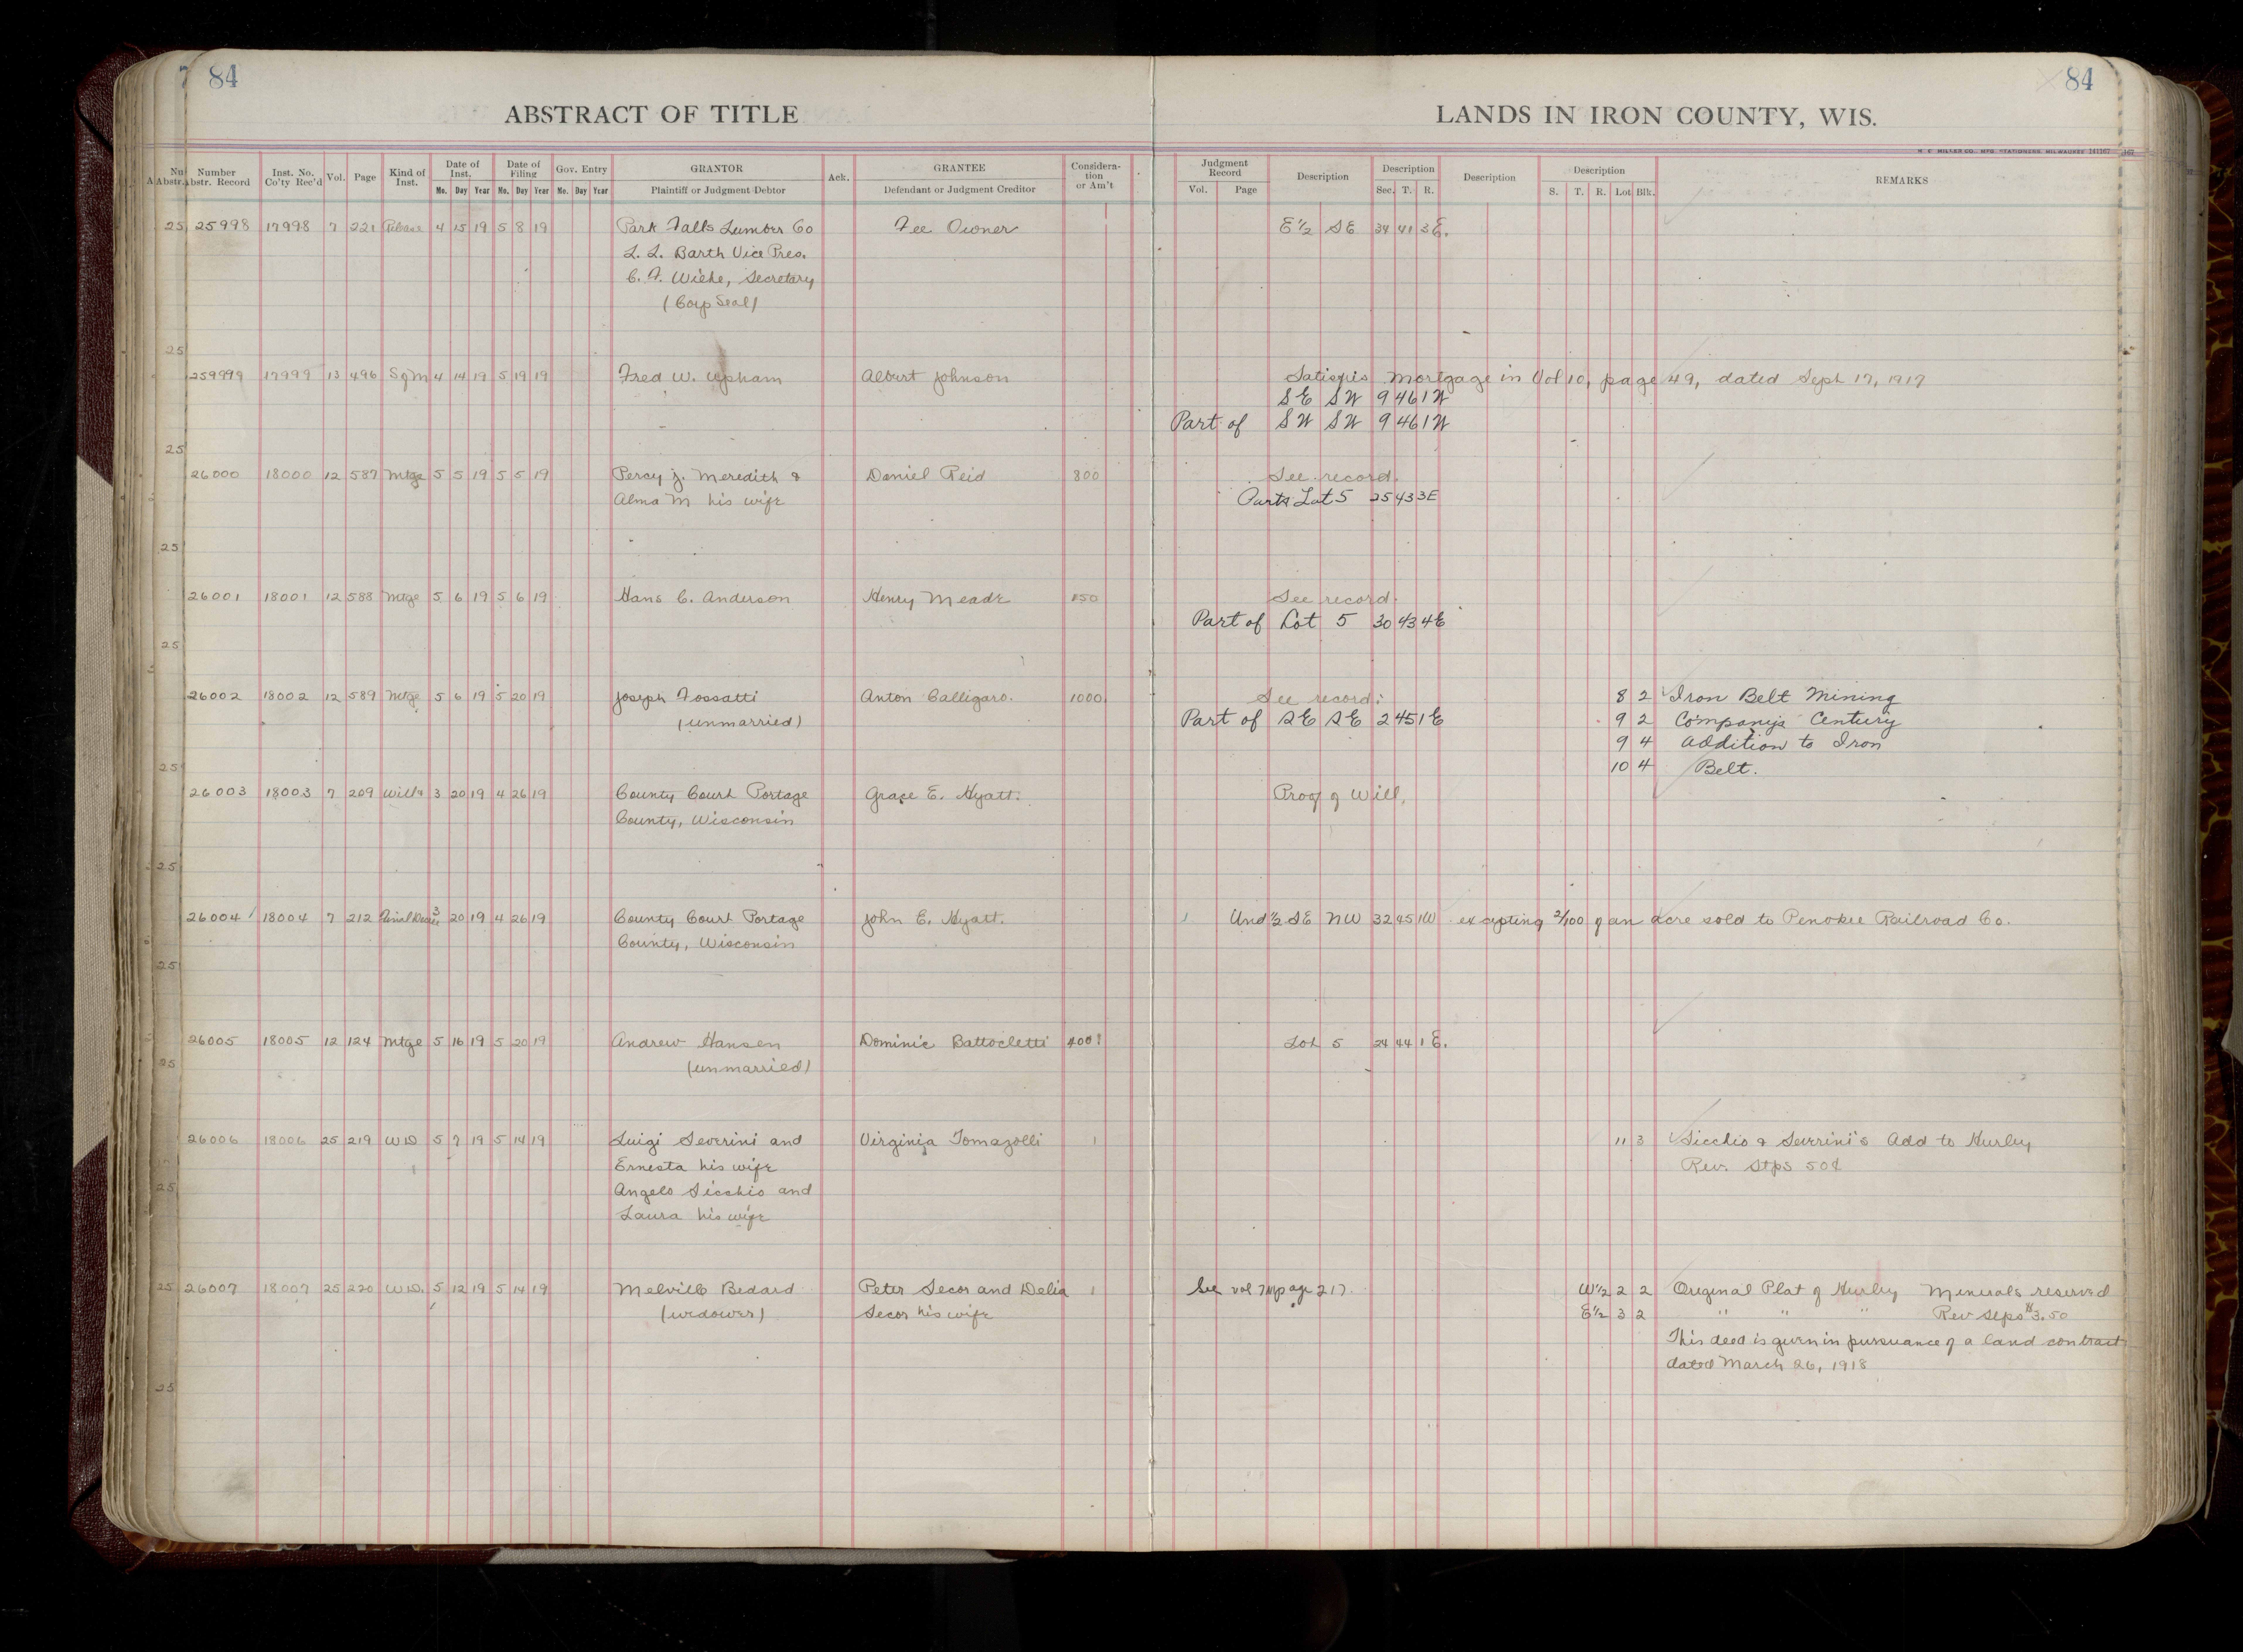 84
84
ABSTRACT OF TITLE
LANDS IN IRON COUNTY, WIS.
Number Abstr. Record | Inst. No. Co'ty Rec'd | Vol. | Page | Kind of Inst. | Date of Inst. Mo. Day Year | Date of Filing Mo. Day Year | Gov. Entry Mo. Day Year | GRANTOR Plaintiff or Judgment Debtor | Ack. | GRANTEE Defendant or Judgment Creditor | Considera-tion or Am't | Judgment Record Vol. Page | Description | Description Sec. T. R. | Description | Description S. T. R. Lot Blk. | REMARKS
25998 17998 7 221 Release 4 15 19 5 8 19 Park Falls Lumber Co Fee Owner E½ SE 34 41 3E.
L. L. Barth Vice Pres.
C. A. Wiehe, Secretary
(Corp Seal)
259999 17999 13 496 Sqm 4 14 19 5 19 19 Fred W. Upham Albert Johnson Satisfies mortgage in Vol 10, page 49, dated Sept 17, 1917
SE SW 9 46 1W
Part of SW SW 9 46 1W
26000 18000 12 587 Mtge 5 5 19 5 5 19 Percy J. Meredith & Daniel Reid 800 See record.
Alma M his wife Parts Lot 5 25 43 3E
26001 18001 12 588 Mtge 5 6 19 5 6 19 Hans C. Anderson Henry Meade 150 See record.
Part of Lot 5 30 43 4E
26002 18002 12 589 Mtge 5 6 19 5 20 19 Joseph Fossatti Anton Calligaro. 1000 See record: 8 2 Iron Belt Mining
(unmarried) Part of SE SE 2 45 1E 9 2 Company's Century
9 4 Addition to Iron
10 4 Belt.
26003 18003 7 209 Wills 3 20 19 4 26 19 County Court Portage Grace E. Hyatt. Proof of Will,
County, Wisconsin
26004 18004 7 212 Final Decree 3 20 19 4 26 19 County Court Portage John E. Hyatt. Und ½ SE NW 32 45 1W excepting 2/100 of an acre sold to Penokee Railroad Co.
County, Wisconsin
26005 18005 12 124 Mtge 5 16 19 5 20 19 Andrew Hansen Dominic Battocletti 400 Lot 5 24 44 1E.
(unmarried)
26006 18006 25 219 WD 5 7 19 5 14 19 Luigi Severini and Virginia Tomazolli 1 11 3 Sicchio & Severini's Add to Hurley
Ernesta his wife Rev. Stps 50¢
Angelo Sicchio and
Laura his wife
26007 18007 25 220 W.D. 5 12 19 5 14 19 Melvill Bedard Peter Secor and Delia 1 See vol 7 M page 217. W½ 2 2 Original Plat of Hurley Minerals reserved
(widower) Secor his wife E½ 3 2 " " " Rev Stps $3.50
This deed is given in pursuance of a land contract
dated March 26, 1918